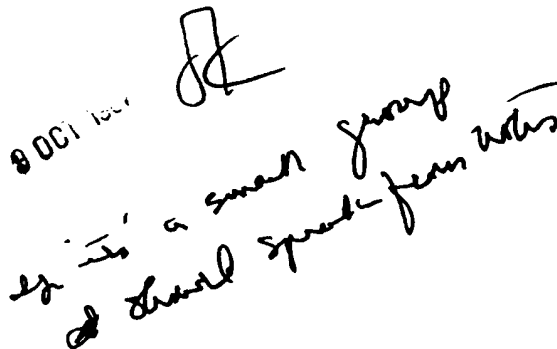 8 OCT
If it's a small group
I should speak from notes